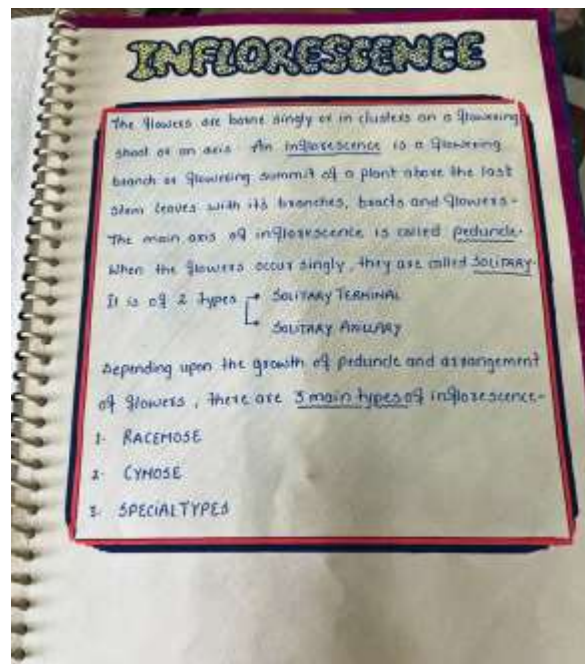 INFLORESCENCE
The flowers are borne singly or in clusters on a flowering
shoot or an axis. An inflorescence is a flowering
branch or flowering summit of a plant above the last
stem leaves with its branches, bracts and flowers.
The main axis of inflorescence is called peduncle.
When the flowers occur singly, they are called SOLITARY.
It is of 2 types → SOLITARY TERMINAL
→ SOLITARY AXILLARY
Depending upon the growth of peduncle and arrangement
of flowers, there are 3 main types of inflorescence-
1. RACEMOSE
2. CYMOSE
3. SPECIAL TYPES